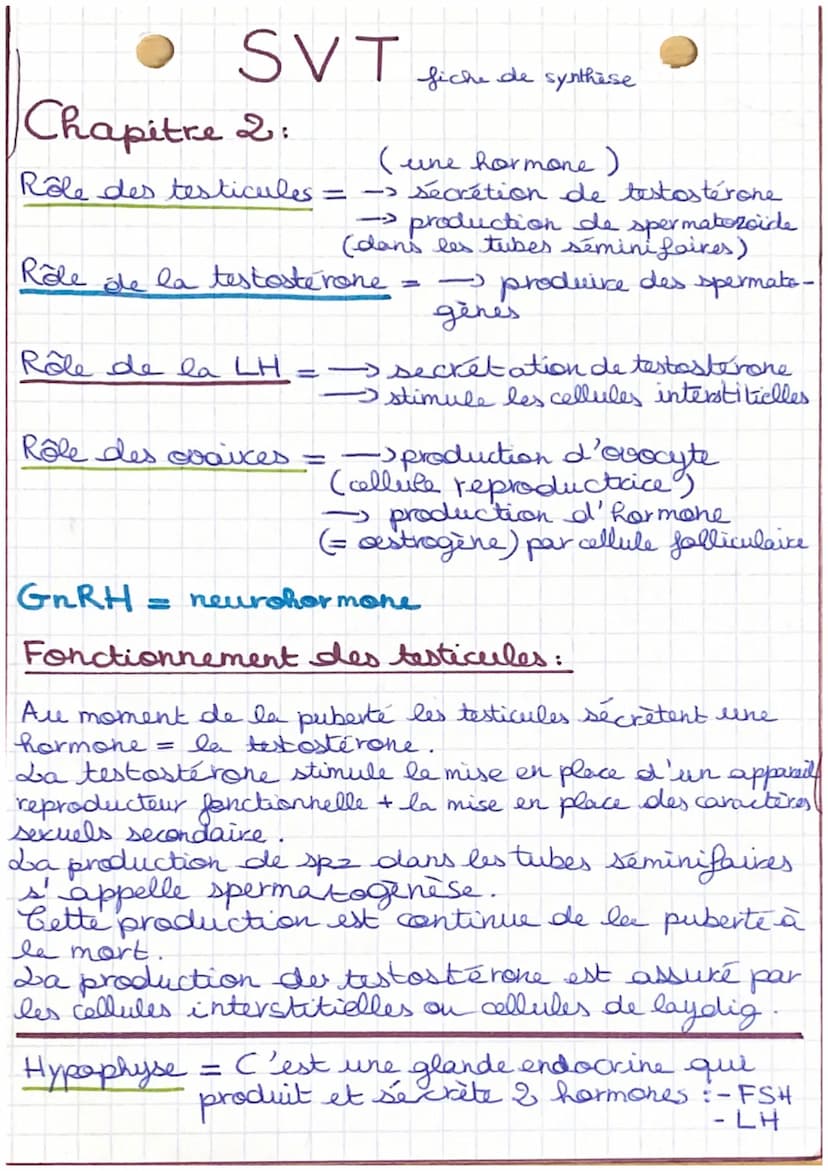 SVT fiche de synthèse
Chapitre 2:
(une hormone)
Rôle des testicules = -> sécrétion de testostérone
-> production de spermatozoïde
(dans les tubes séminifaires)
Rôle de la testostérone = -> produire des spermato-
gènes
Rôle de la LH = -> secrétation de testostérone
-> stimule les cellules interstitielles
Rôle des ovaires = -> production d'ovocyte
(cellule reproductrice)
-> production d'hormone
(= œstrogène) par cellule folliculaire
GnRH = neurohormone
Fonctionnement des testicules :
Au moment de la puberté les testicules sécrètent une
hormone = la testostérone.
La testostérone stimule la mise en place d'un appareil
reproducteur fonctionnelle + la mise en place des caractères
sexuels secondaire.
La production de spz dans les tubes séminifaires
s'appelle spermatogènèse.
Cette production est continue de la puberté à
la mort.
La production de testostérone est assuré par
les cellules interstitielles ou cellules de laydig.
Hypophyse = C'est une glande endocrine qui
produit et sécrète 2 hormones : - FSH
- LH